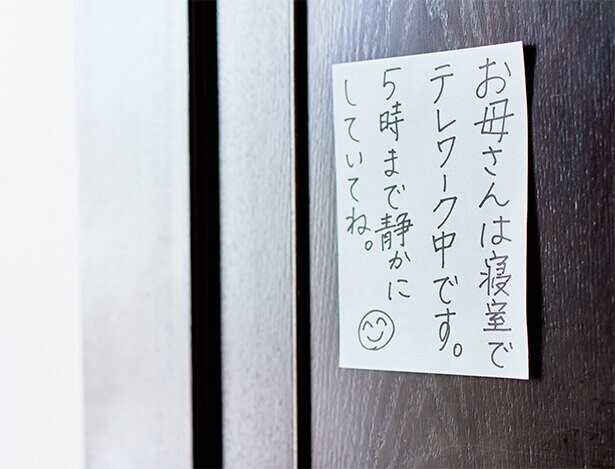 お母さんは寝室で
テレワーク中です。
5時まで静かに
していてね。